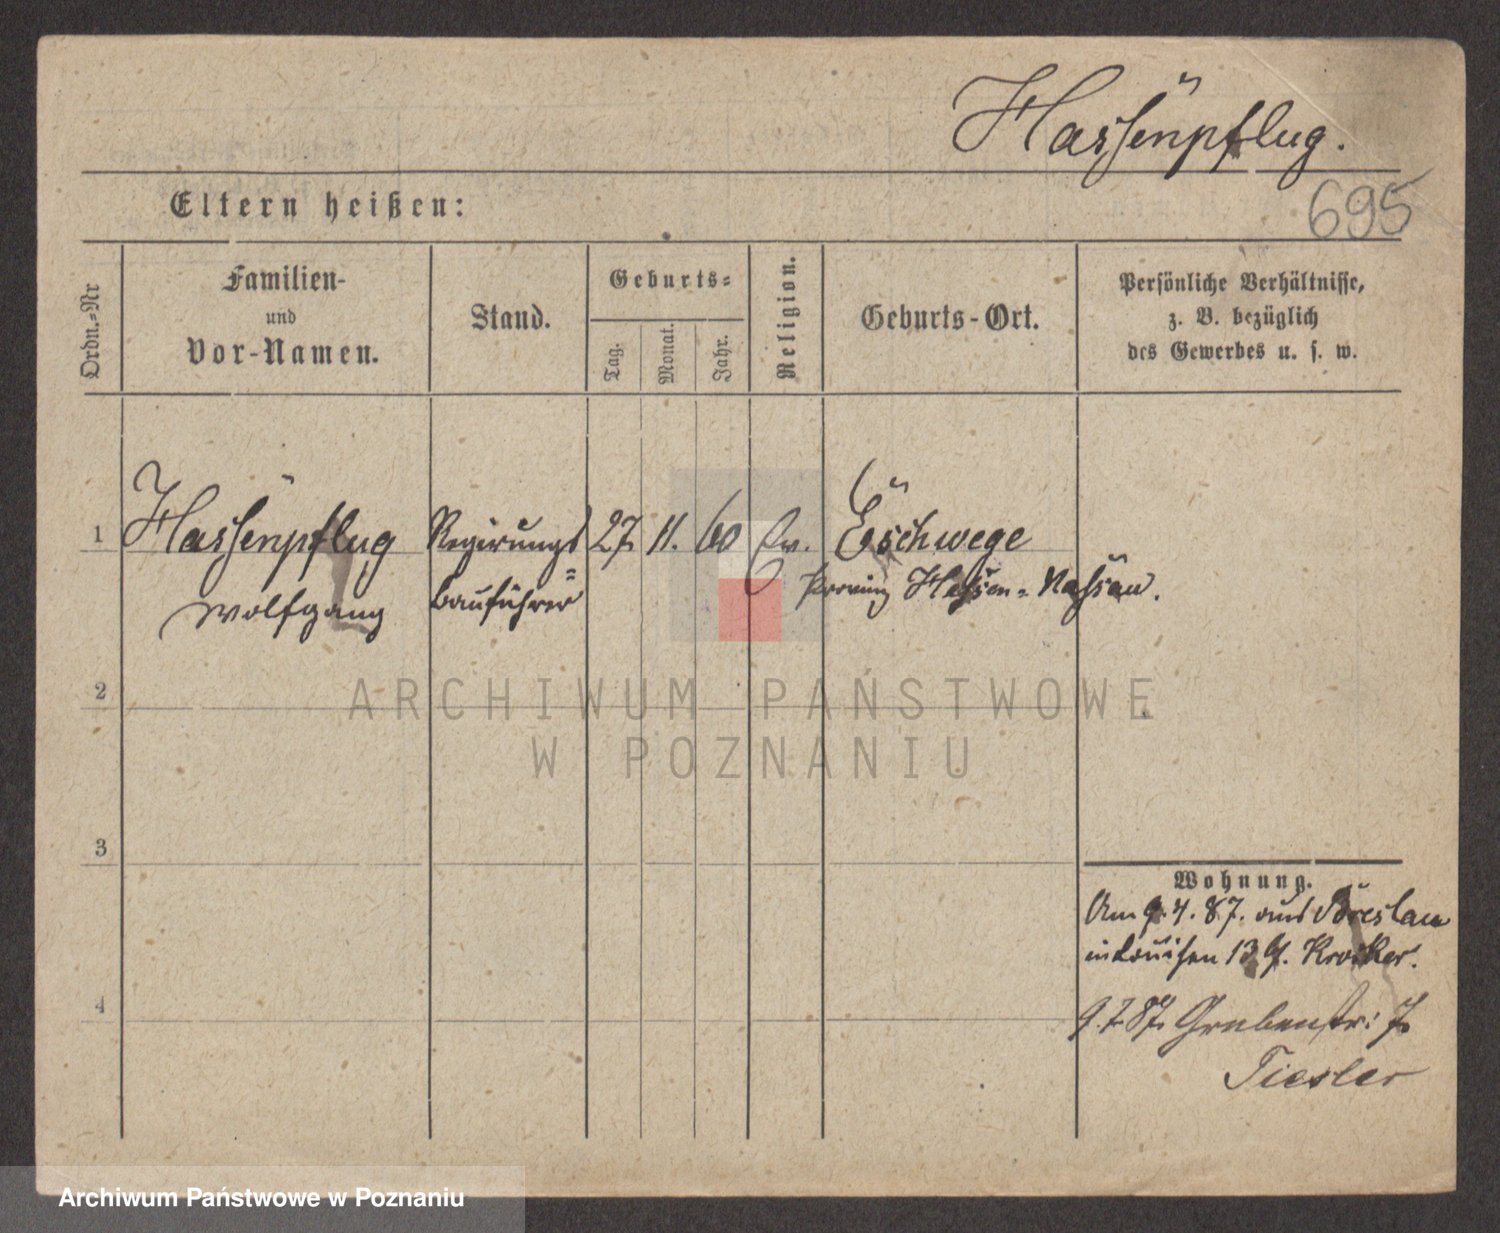 Hassenpflug.
695
Eltern heißen:
Ordn.-Nr
Familien-
und
Vor-Namen.
Stand.
Geburts-
Tag.
Monat.
Jahr.
Religion.
Geburts-Ort.
Persönliche Verhältnisse,
z. B. bezüglich
des Gewerbes u. s. w.
1 Hassenpflug Regirungs 27. 11. 60 Ev. Eschwege
Wolfgang bauführer Provinz Hessen-Nassau.
2
ARCHIWUM PAŃSTWOWE
W POZNANIU
3
Wohnung.
Am 9.4.87. aus Breslau
in Louisen 13 b.
4
9.7.87. Grabenstr: 7.
Tiesler
Archiwum Państwowe w Poznaniu